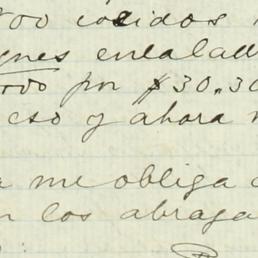 too cosidos
gnes enlalad
todo por $30.30
eso y ahora
a me obliga a
n los abraga